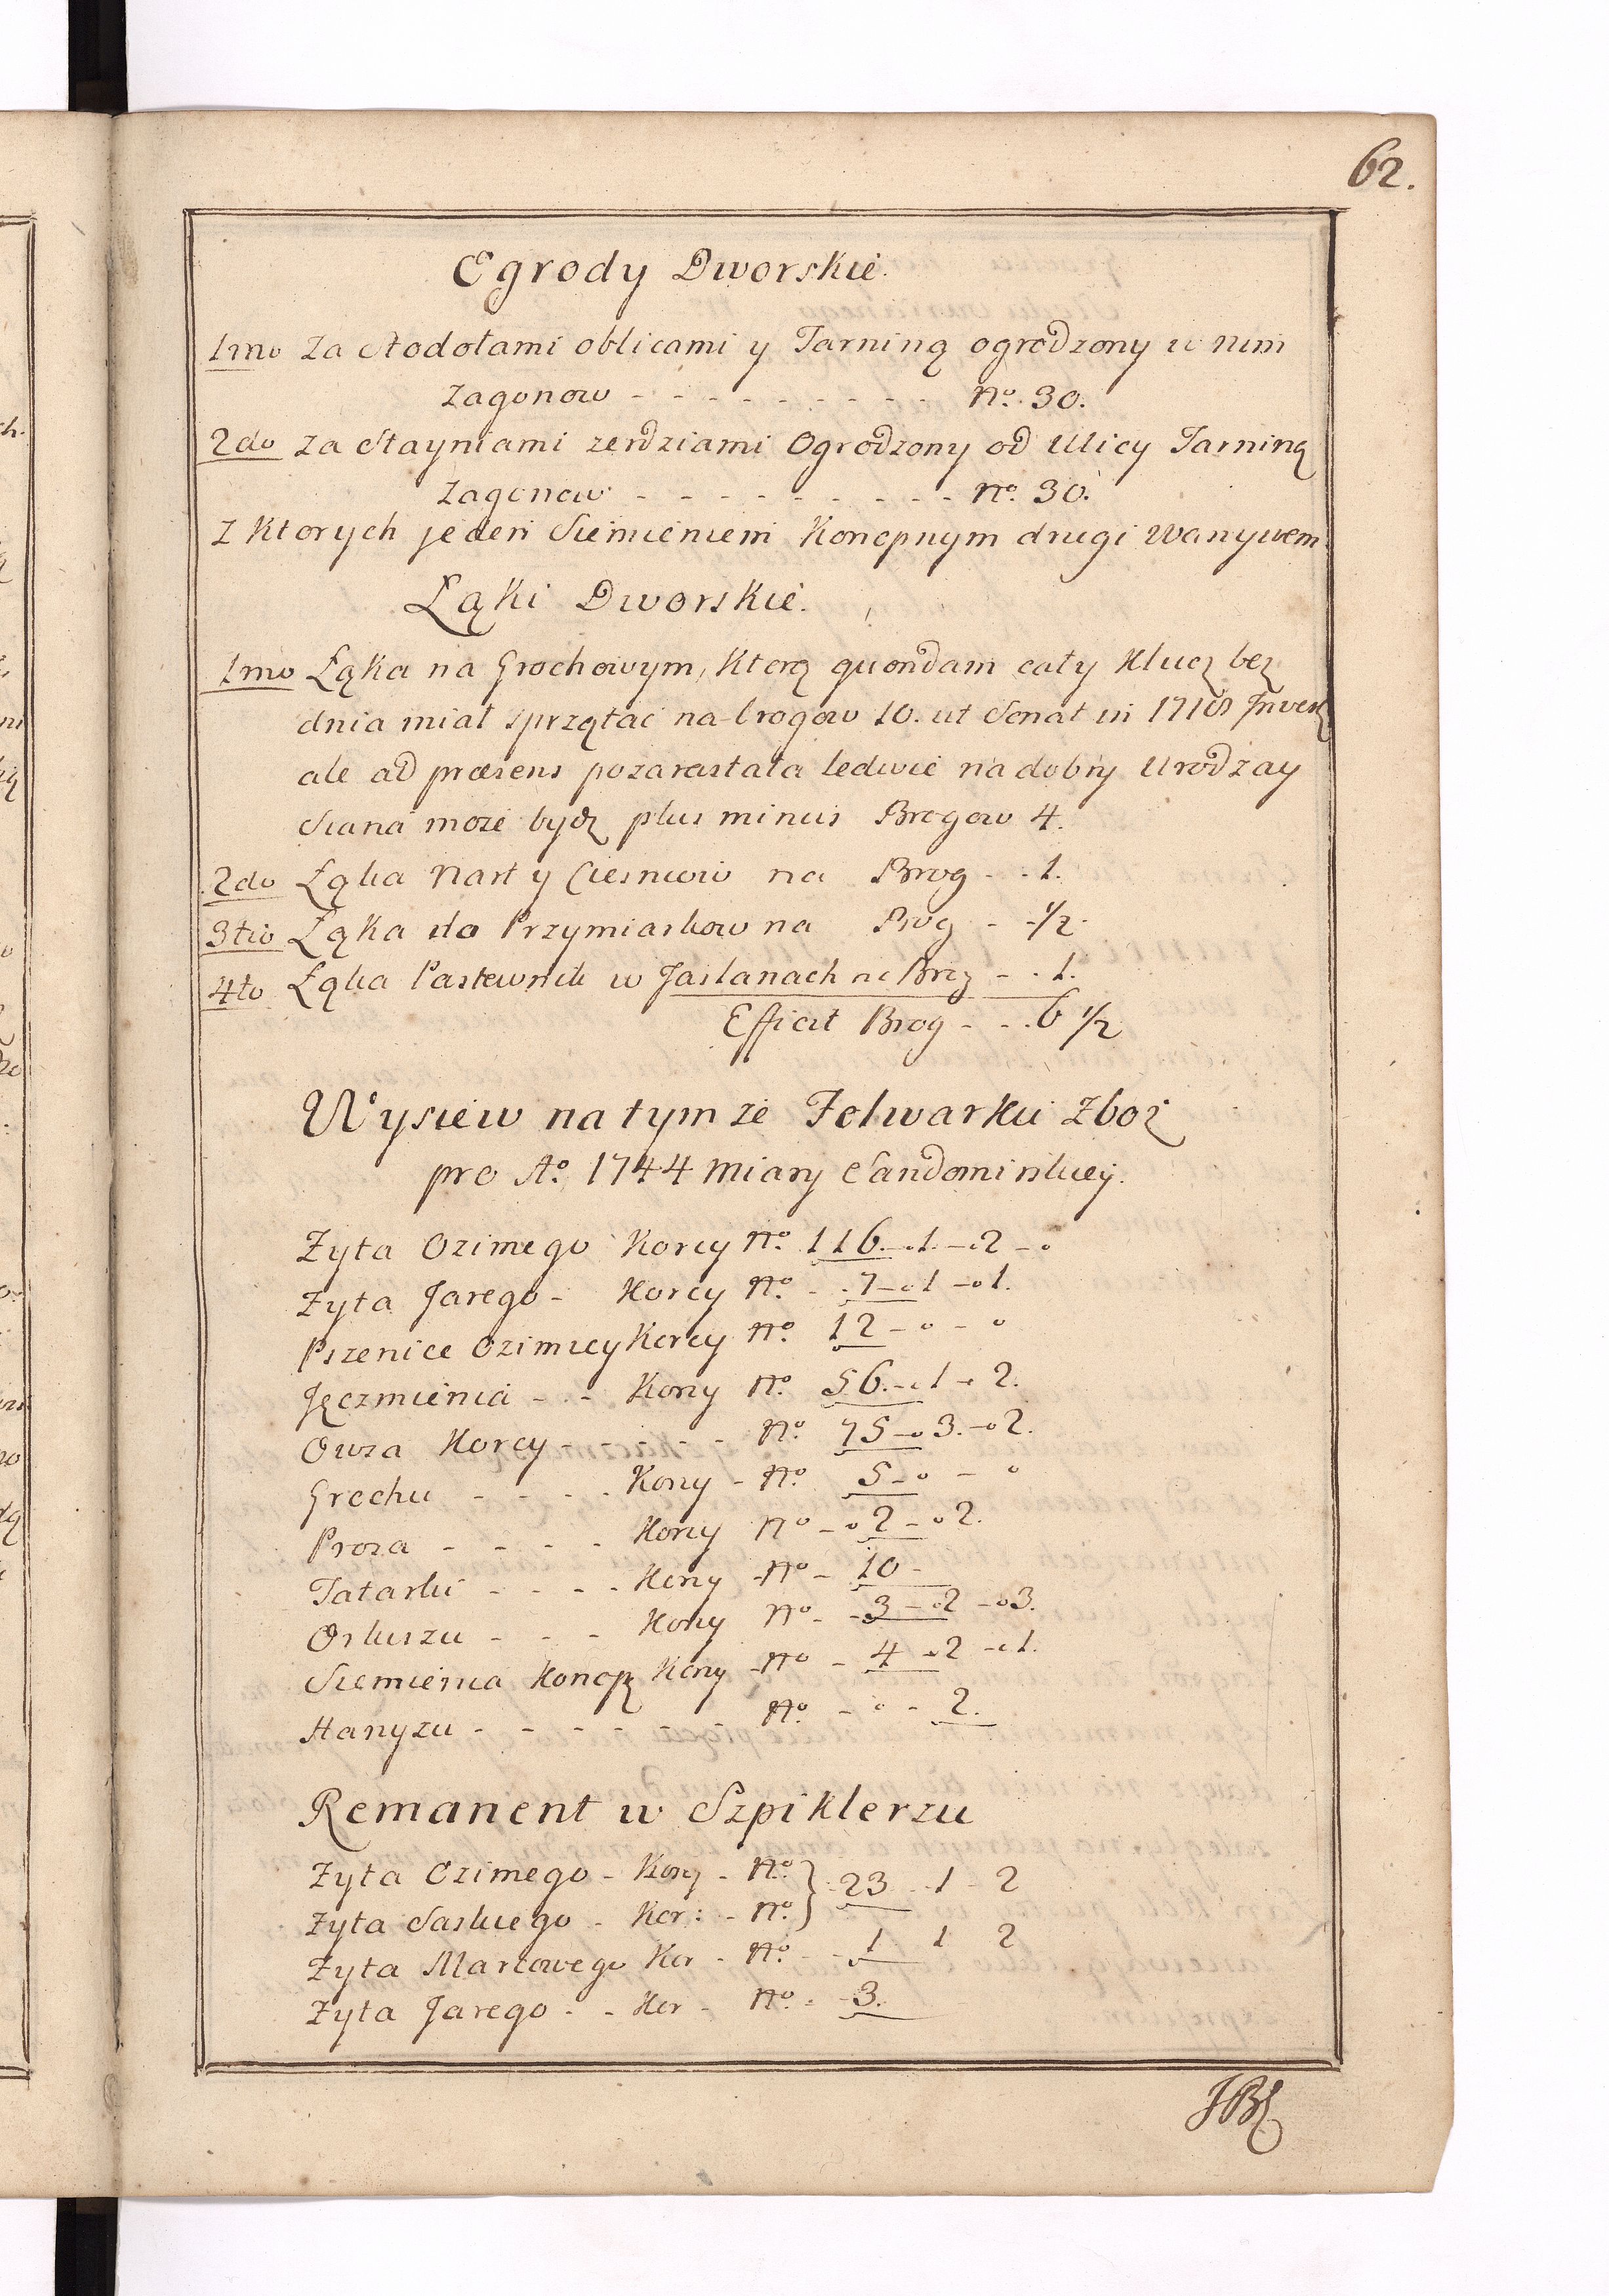 62.
Ogrody Dworskie.
1mo Za Stodołami oblicami y Tarniną ogrodzony w nim
Zagonow - - - - - - - - - No. 30.
2do za Stayniami zerdziami Ogrodzony od Ulicy Tarniną
Zagonow - - - - - - - - - No. 30.
Z Ktorych jeden Siemieniem Konopnym drugi Wanyzem
Łąki Dworskie.
1mo Łąka na Grochowym, Ktorą quondam cały Klucz bez
dnia miał sprzątać na brogow 10. ut Sonat in 1718
ale ad præsens pozarastała ledwie na dobry Urodzay
Siana może bydz plus minus Brogow 4.
2do Łąka Nart y Ciesniow na Brog - - 1.
3tio Łąka do Przymiarkow na Brog - - 1/2.
4to Łąka Pastewnik w Jaślanach na Brog - - 1.
Efficit Brog - - . 6 1/2
Wysiew na tym ze Folwarku Zboż
pro Ao. 1744 Miary Sandomirskiey.
Zyta Ozimego Korcy No. 116. - 1. - 2 - o
Zyta Jarego - Korcy No. - . 7 - 1 - 1.
Pszenice Ozimiey Korcy No. 12 - o - o
Jęczmienia - - - Korcy No. 56. - 1 - 2.
Owsa Korcy - - - - - No. 75 - 3. - 2.
Grochu - - - - Korcy - No. 5 - o - o
Prosa - - - - - Korcy No - o 2 - o 2.
Tatarki - - - - Korcy - No - 10 -
Orkiszu - - - Korcy No - - 3 - 2 - 3.
Siemienia Konop Korcy - No - 4 - 2 - 1.
Hanyzu - - - - - - - No. - o - 2.
Remanent w Szpiklerzu
Zyta Ozimego - Korcy - No. } 23 - 1 - 2
Zyta Saskiego - Kor: - No.
Zyta Marcowego Kor - No. - - 1 1 2
Zyta Jarego - - Kor - No. - 3.